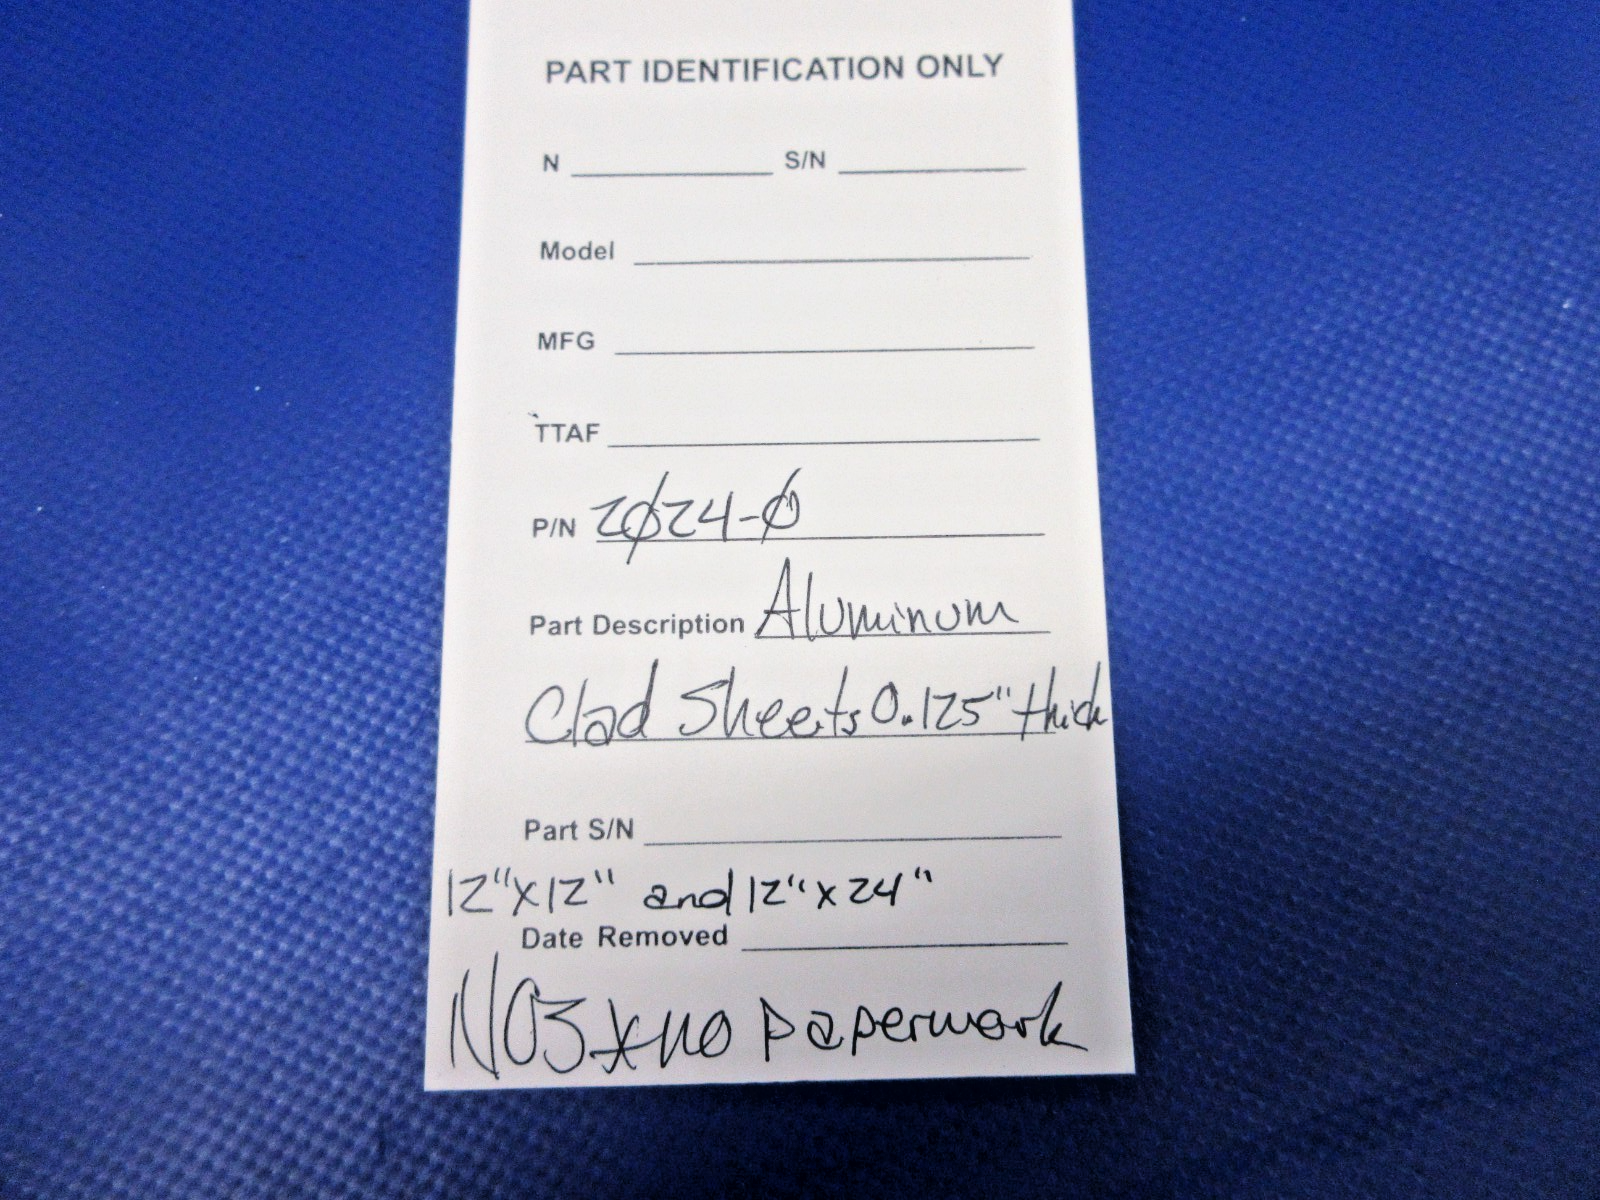 PART IDENTIFICATION ONLY
N S/N
Model
MFG
TTAF
P/N 2024-0
Part Description Aluminum
Clad Sheets 0.125" thick
Part S/N
12"x12" and 12"x24"
Date Removed
NO3 * no paperwork